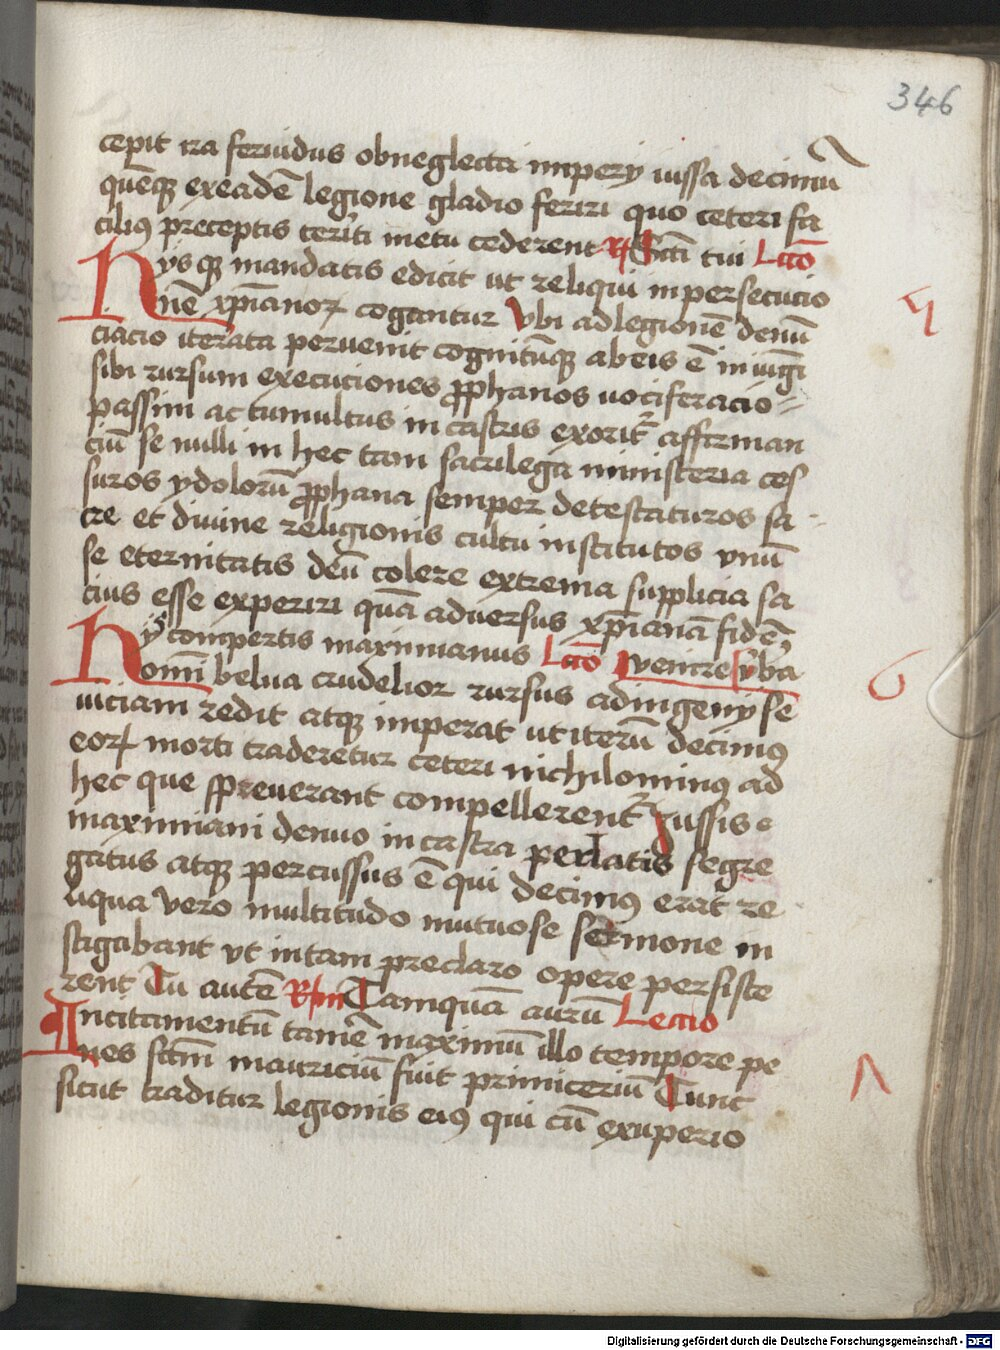 346
cepit ira feruidus obneglecta impery iussa decimū
quēq; exeadē legione gladio feriri quo ceteri fa
cilius preceptis territi metu cederent R Sācti tui Lcō
Hys q; mandatis edicit ut reliqui inpersecucio
nē xp̄ianor cogantur Vbi adlegionē denū
ciacio iterata peruenit cognitūq; abeis ē iniūgi
sibi rursum execuciones prophanos uociferacio
passim ac tumultus in castris exorit affirman
ciū se nulli in hec tam sacrilega ministeria ces
suros ydolorū prophana semper detestaturos sa
cre et diuine religionis cultu institutos vnū
se eternitatis deū colere extrema supplicia sa
cius esse experiri quā aduersus xp̄ianā fidē
Hys compertis maximianus Lcō
omī belua crudelior rursus adingeny se
uiciam redit atq; imperat ut iterū decimus
eor morti traderetur ceteri nichilominus ad
hec que spreuerant compellerent Iussis e
maximiani denuo in castra perlatis segre
gatus atq; percussus ē qui decimus erat re
liqua vero multitudo mutuose sermone in
stigabant vt intam preclaro opere persiste
rent Tu autē Rm Tamquā aurū Leccio
Incitamentū tamē maximū illo tempore pe
nes sctm mauriciū fuit primiceriū Tunc
sicut traditur legionis eius qui cū exuperio
5
6
Digitalisierung gefördert durch die Deutsche Forschungsgemeinschaft - DFG